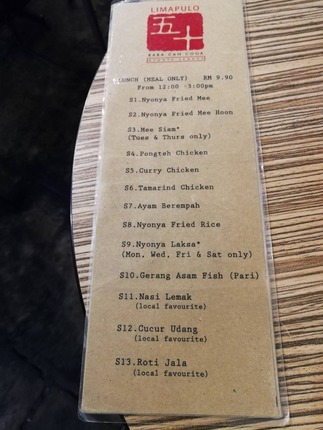 LIMAPULO
五十
BABA CAN COOK
LUNCH (MEAL ONLY) RM 9.90
From 12:00 -3:00pm
S1.Nyonya Fried Mee
S2.Nyonya Fried Mee Hoon
S3.Mee Siam*
(Tues & Thurs only)
S4.Pongteh Chicken
S5.Curry Chicken
S6.Tamarind Chicken
S7.Ayam Berempah
S8.Nyonya Fried Rice
S9.Nyonya Laksa*
(Mon, Wed, Fri & Sat only)
S10.Gerang Asam Fish (Pari)
S11.Nasi Lemak
(local favourite)
S12.Cucur Udang
(local favourite)
S13.Roti Jala
(local favourite)